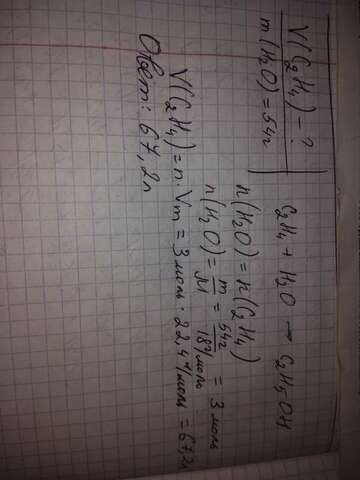 V(C₂H₄) - ?
m(H₂O) = 54г
C₂H₄ + H₂O → C₂H₅OH
n(H₂O) = n(C₂H₄)
n(H₂O) = m/M = 54г/18г/моль = 3 моль
V(C₂H₄) = n · Vm = 3 моль · 22,4 л/моль = 67,2л
Ответ: 67,2л